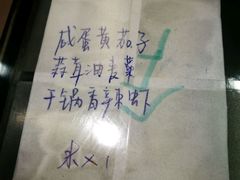 咸蛋黄茄子
蒜茸油麦菜
干锅香辣虾
米x1